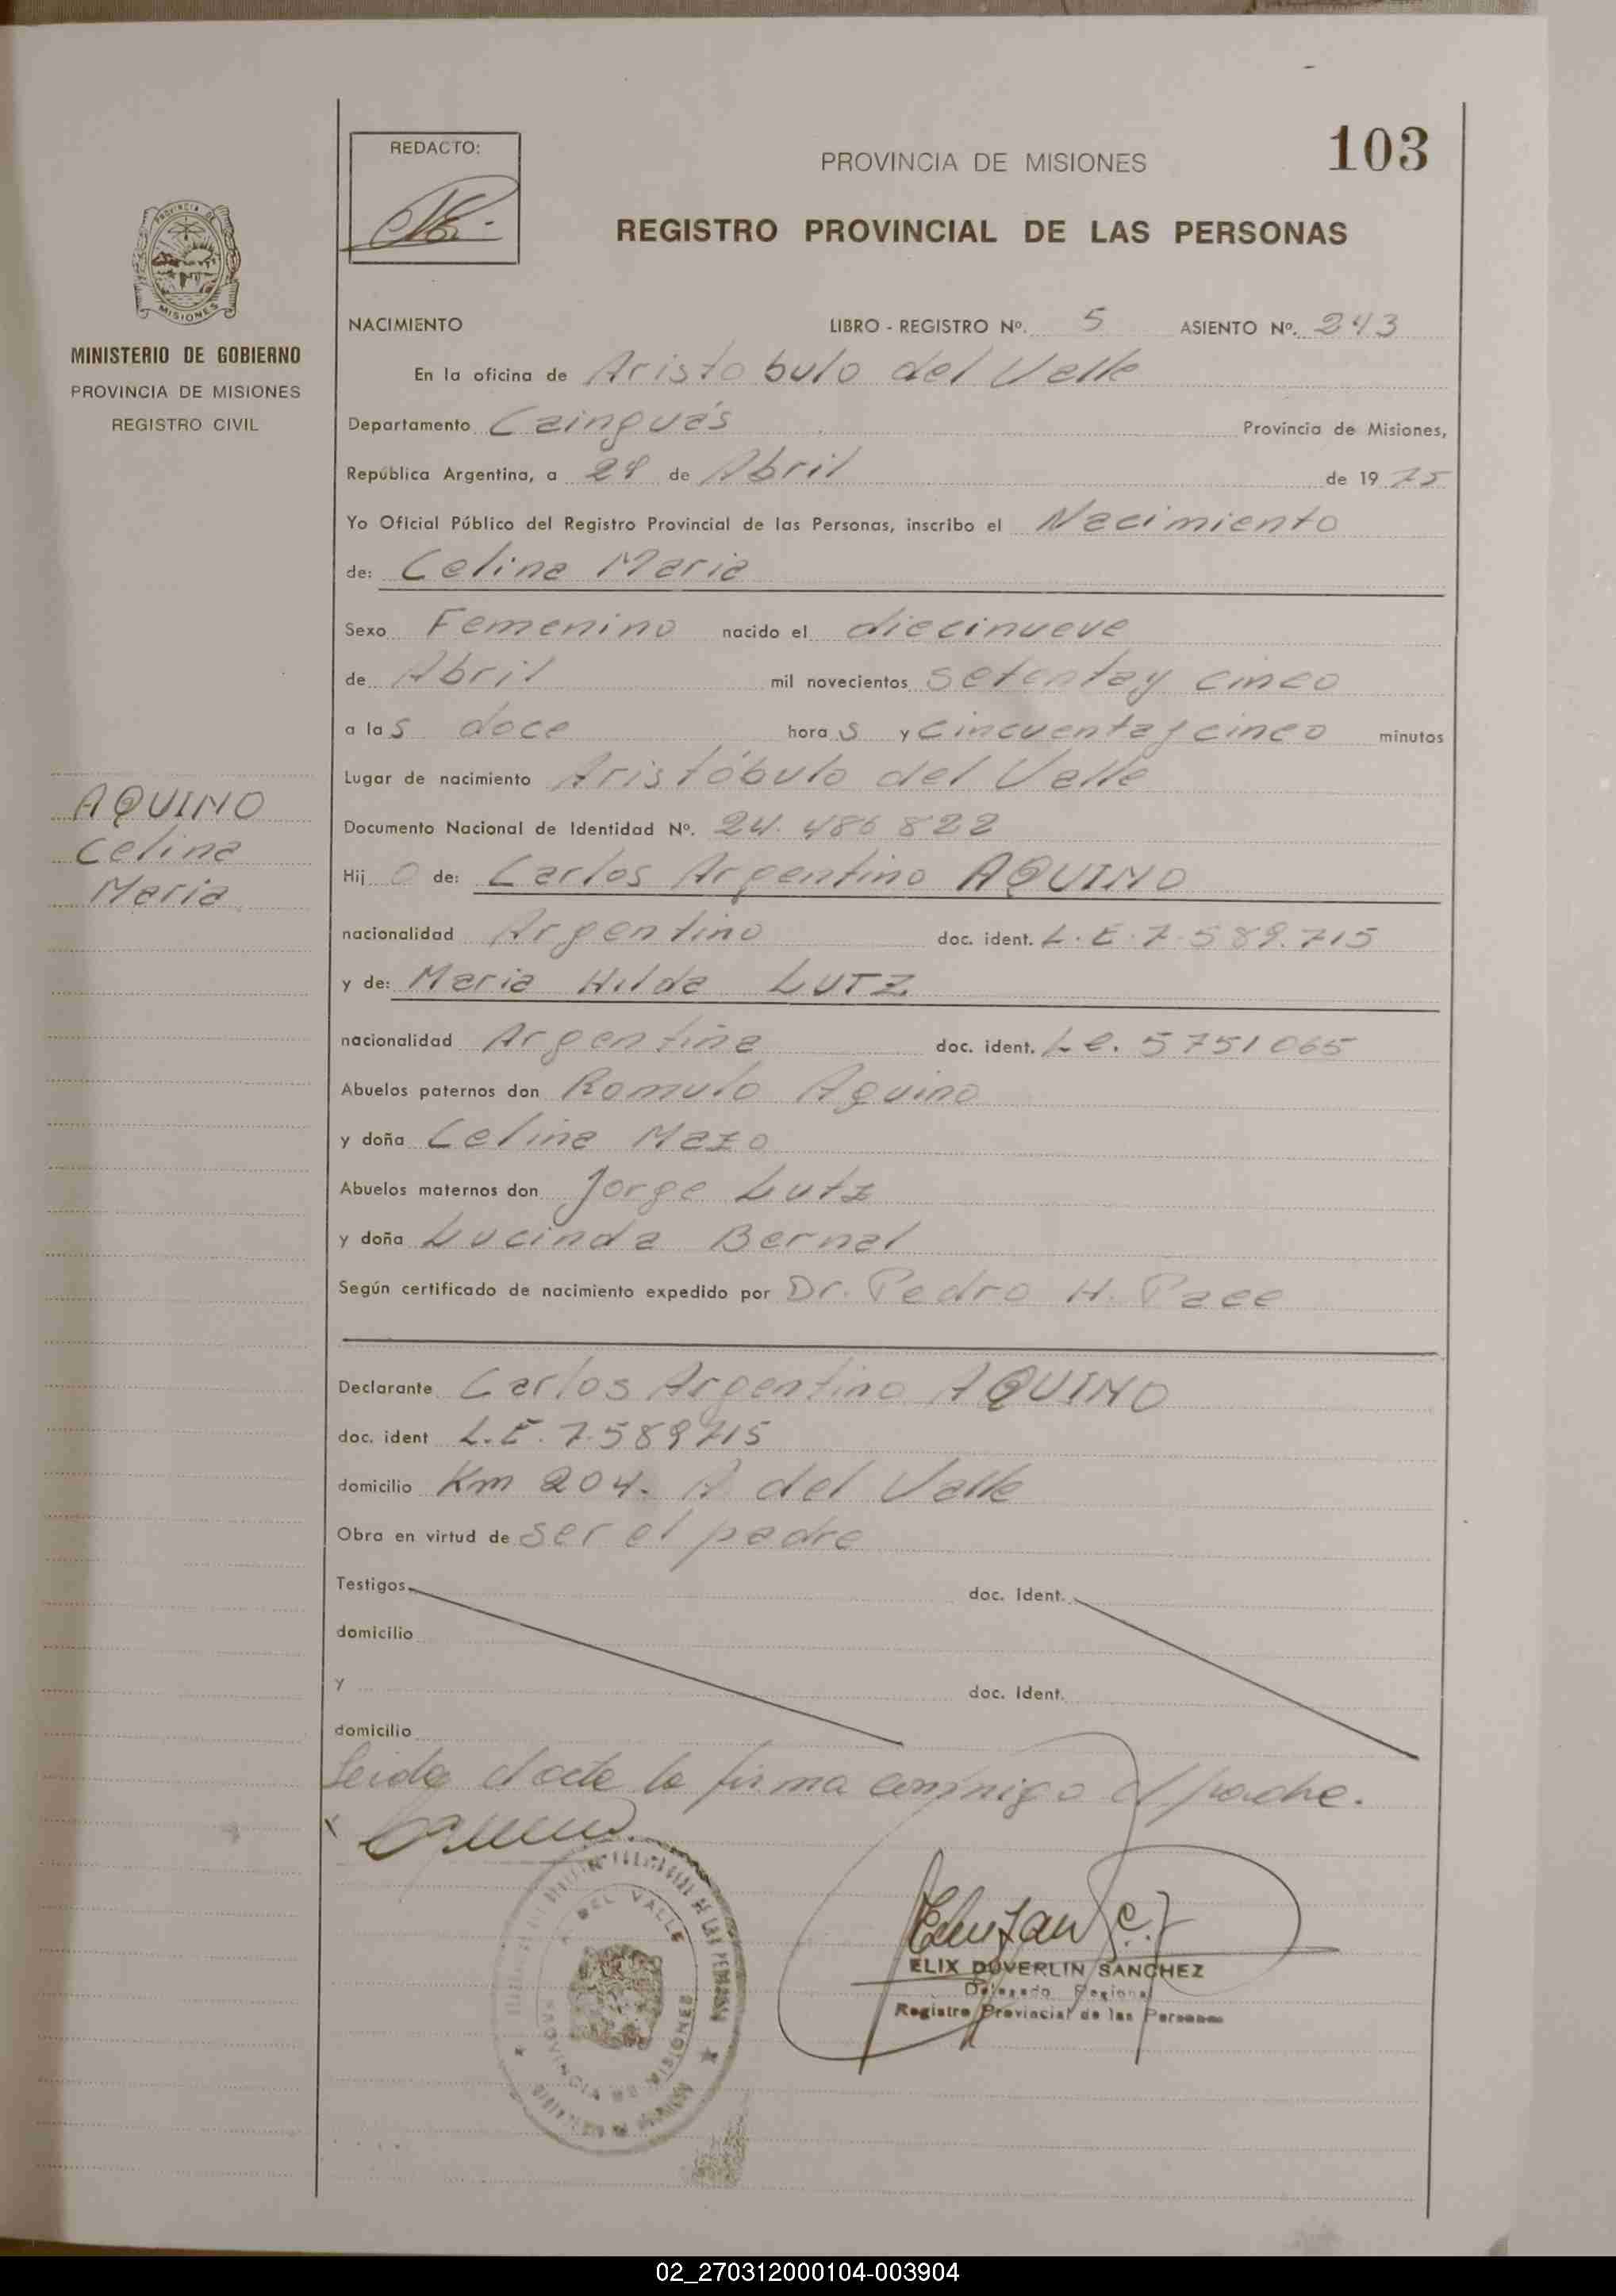 103
REDACTO:
PROVINCIA DE MISIONES
REGISTRO PROVINCIAL DE LAS PERSONAS
PROVINCIA DE
MISIONES
MINISTERIO DE GOBIERNO
PROVINCIA DE MISIONES
REGISTRO CIVIL
NACIMIENTO LIBRO - REGISTRO Nº. 5 ASIENTO Nº. 243
En la oficina de Aristobulo del Valle
Departamento Cainguás Provincia de Misiones,
República Argentina, a 29 de Abril de 1975
Yo Oficial Público del Registro Provincial de las Personas, inscribo el Nacimiento
de: Celina Maria
Sexo Femenino nacido el diecinueve
de Abril mil novecientos setentay cinco
a las doce horas y cincuenta y cinco minutos
Lugar de nacimiento Aristóbulo del Valle
AQUINO
Celina
Maria
Documento Nacional de Identidad Nº. 24.486822
Hij a de: Carlos Argentino AQUINO
nacionalidad Argentino doc. ident. L.E.7.589.715
y de: Maria Hilda LUTZ
nacionalidad Argentina doc. ident. L.C. 5751065
Abuelos paternos don Romulo Aquino
y doña Celina Mazo
Abuelos maternos don Jorge Lutz
y doña Lucinda Bernal
Según certificado de nacimiento expedido por Dr. Pedro H. Pace
Declarante Carlos Argentino AQUINO
doc. ident L.E. 7.589715
domicilio Km 204. A del Valle
Obra en virtud de ser el padre
Testigos doc. Ident.
domicilio
y doc. Ident.
domicilio
Leida el acta la firma conmigo el padre.
A. DEL VALLE
PROVINCIA DE MISIONES
ELIX DUVERLIN SANCHEZ
Delegado Regional
Registro Provincial de las Personas
02_270312000104-003904